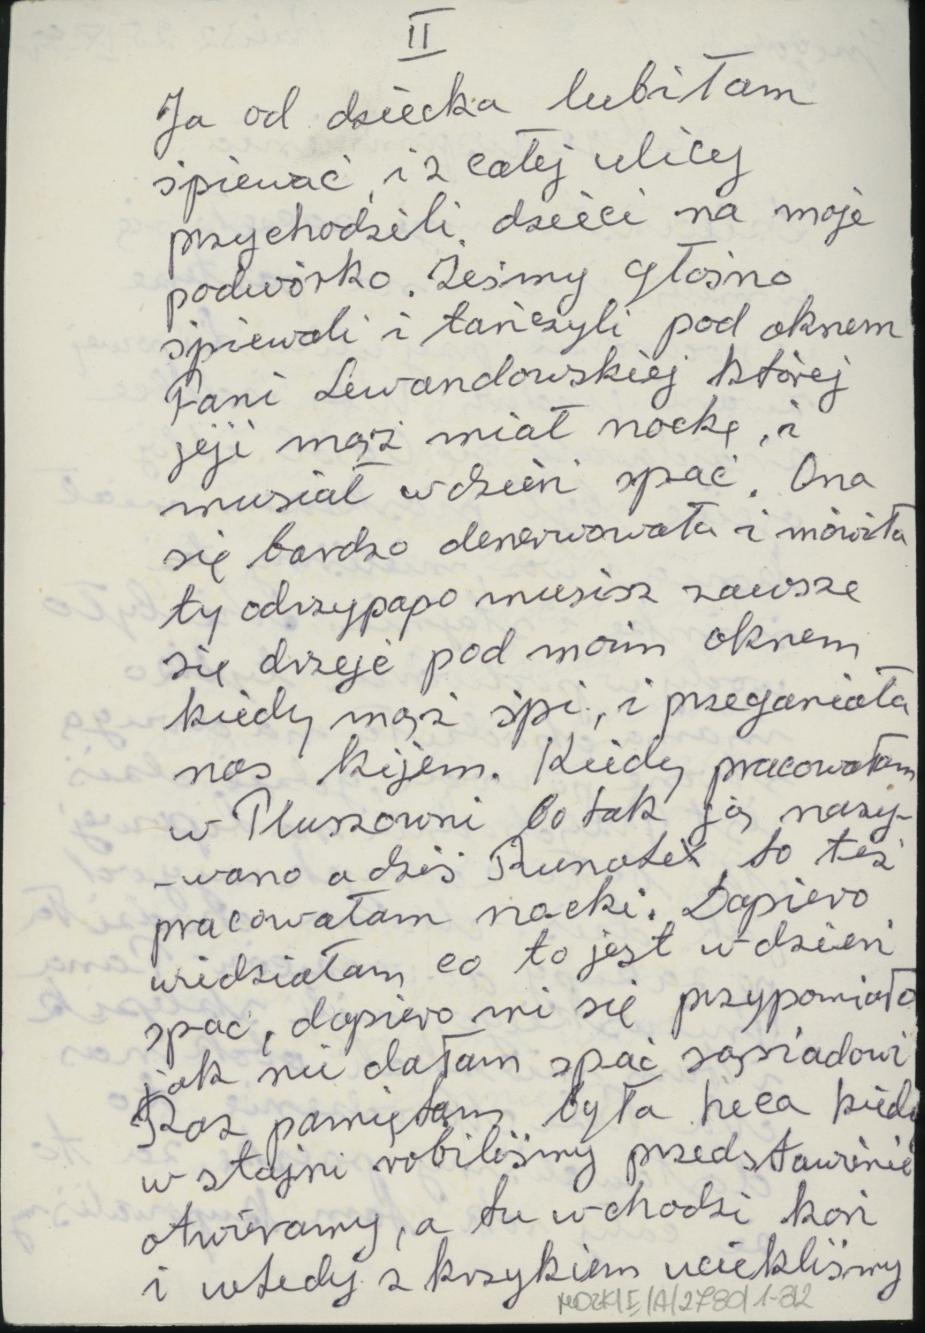 II
Ja od dziecka lubiłam
śpiewać, i z całej ulicy
przychodzili dzieci na moje
podwórko. Żeśmy głośno
śpiewali i tańczyli pod oknem
Pani Lewandowskiej której
jeji mąż miał nockę, i
musiał w dzień spać. Ona
się bardzo denerwowała i mówiła
ty odrzypapo musisz zawsze
się drzeje pod moim oknem
kiedy mąż śpi, i przeganiała
nas kijem. Kiedy pracowałam
w Pluszowni bo tak ją nazy-
-wano a dziś Runotex to też
pracowałam nocki. Dopiero
widziałam co to jest w dzień
spać, dopiero mi się przypomiało
jak nie dałam spać sąsiadowi
Raz pamiętam była heca kiedy
w stajni robiliśmy przedstawinie
otwiramy, a tu wchodzi koń
i wtedy z krzykiem uciekliśmy
MOZK/E/A/2780/1-82